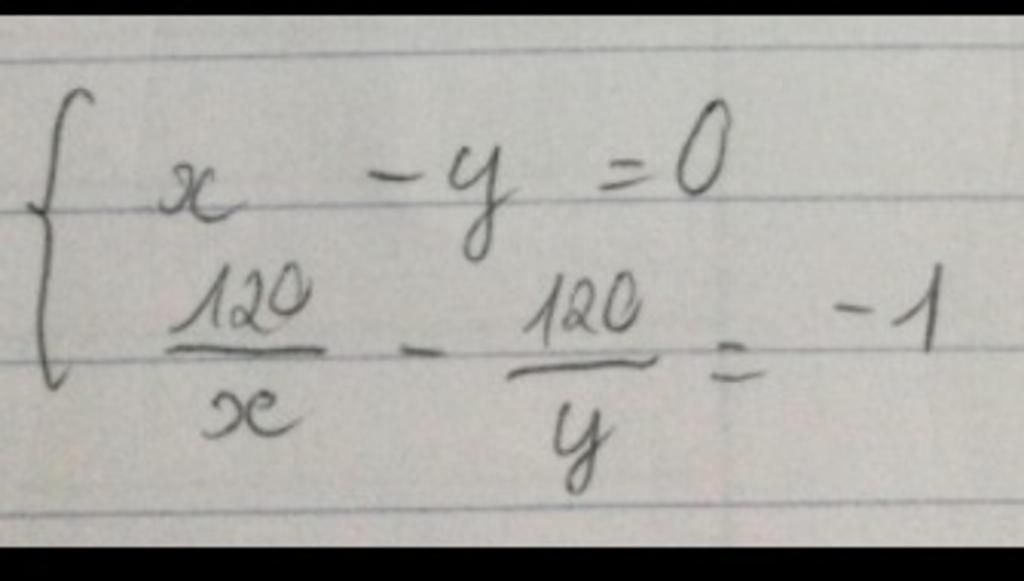 x - y = 0
120/x - 120/y = -1